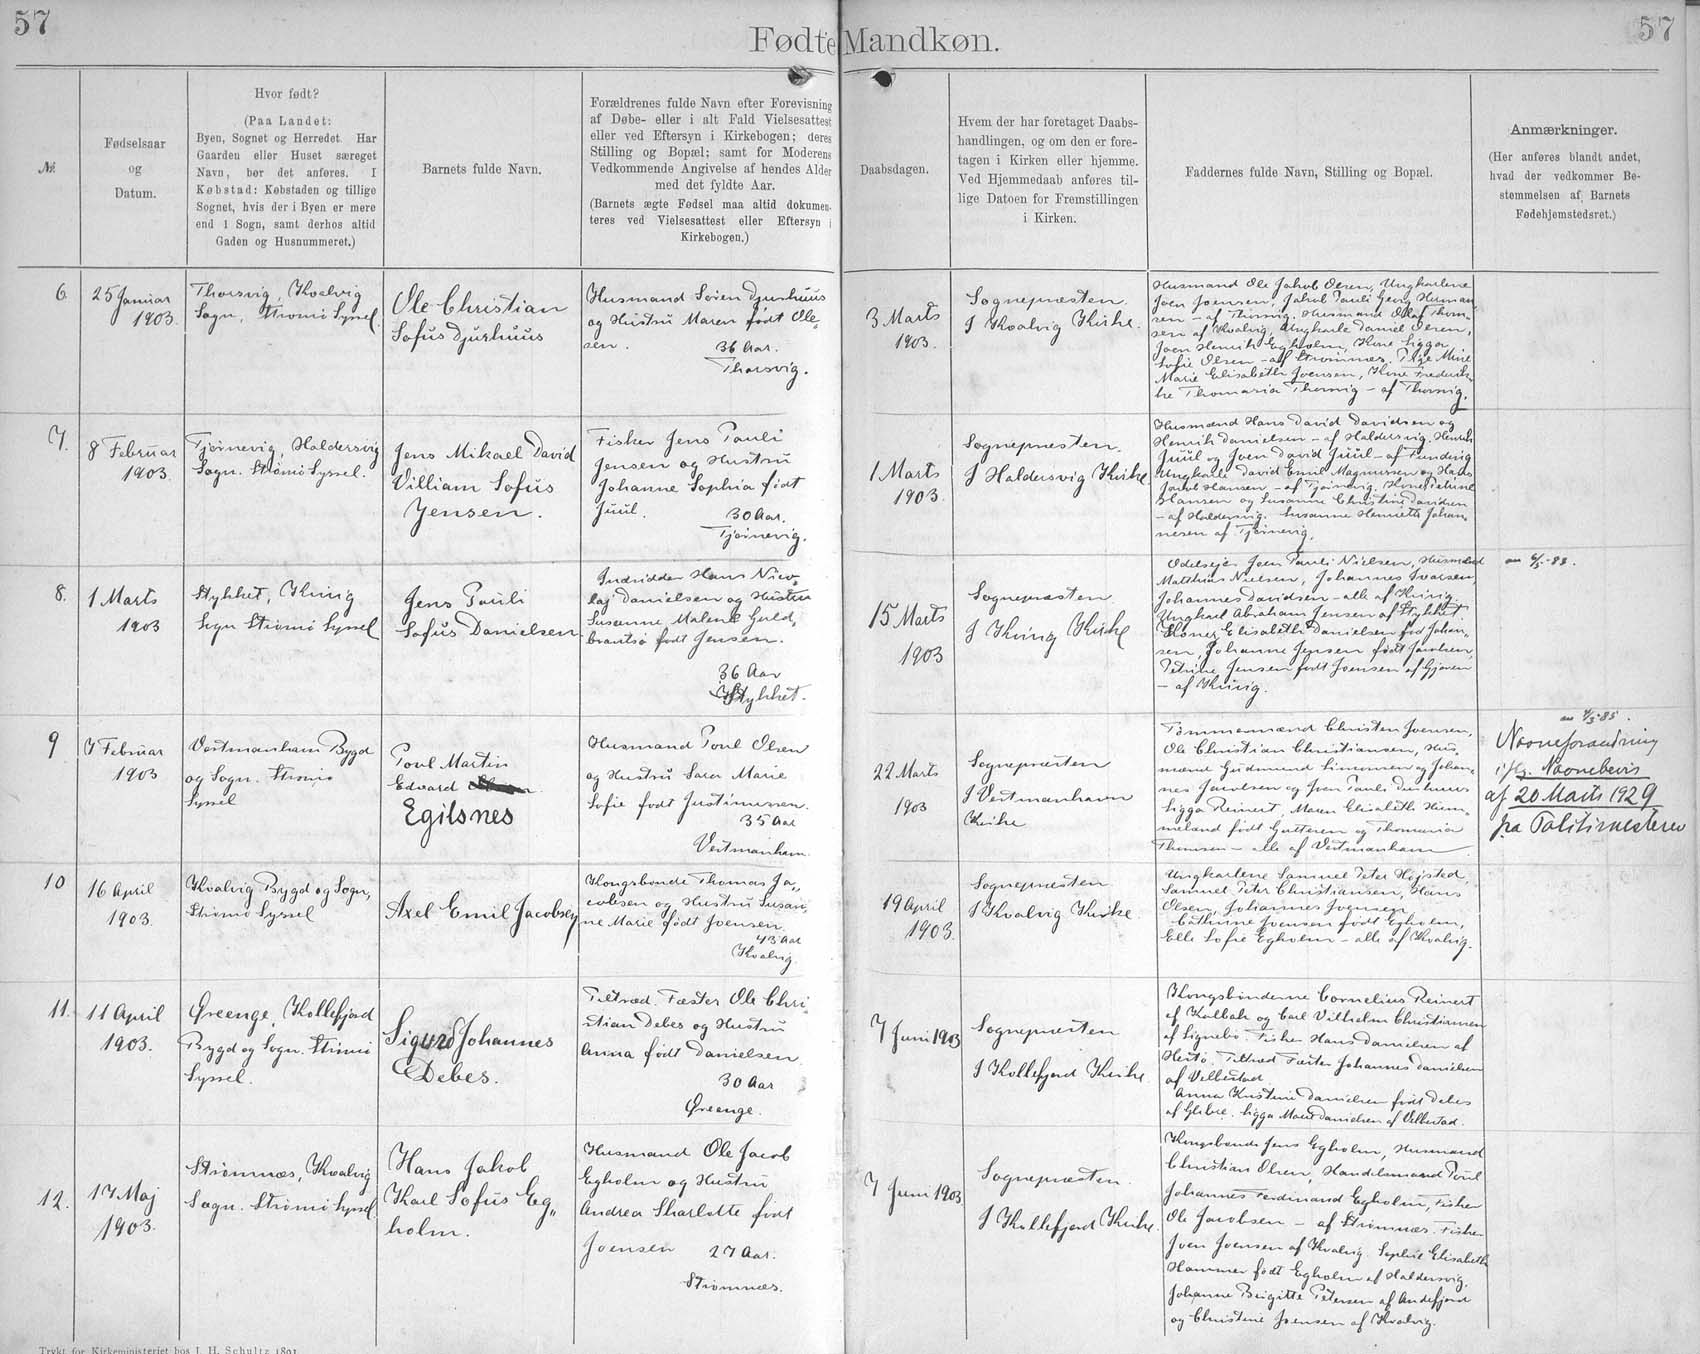 57
57
Fødte Mandkøn.
№
Fødselsaar
og
Datum.
Hvor født?
(Paa Landet:
Byen, Sognet og Herredet. Har
Gaarden eller Huset særeget
Navn, bør det anføres. I
Købstad: Købstaden og tillige
Sognet, hvis der i Byen er mere
end 1 Sogn, samt derhos altid
Gaden og Husnummeret.)
Barnets fulde Navn.
Forældrenes fulde Navn efter Forevisning
af Døbe- eller i alt Fald Vielsesattest
eller ved Eftersyn i Kirkebogen; deres
Stilling og Bopæl; samt for Moderens
Vedkommende Angivelse af hendes Alder
med det fyldte Aar.
(Barnets ægte Fødsel maa altid dokumen-
teres ved Vielsesattest eller Eftersyn i
Kirkebogen.)
Daabsdagen.
Hvem der har foretaget Daabs-
handlingen, og om den er fore-
tagen i Kirken eller hjemme.
Ved Hjemmedaab anføres til-
lige Datoen for Fremstillingen
i Kirken.
Faddernes fulde Navn, Stilling og Bopæl.
Anmærkninger.
(Her anføres blandt andet,
hvad der vedkommer Be-
stemmelsen af Barnets
Fødehjemstedsret.)
6
25 Januar
1903.
Thorsvig, Kvalvig
Sogn, Strømø Syssel.
Ole Christian
Sofus Djurhuus
Husmand Søren Djurhuus
og Hustru Maren født Ole-
sen.
36 Aar.
Thorsvig.
3 Marts
1903.
Sognepræsten
I Kvalvig Kirke.
Husmand Ole Jakob Olsen, Ungkarlene
Joen Joensen, Jakob Pauli Georg Herman
sen - af Thorsvig. Husmand Olaf Thom-
sen af Kvalvig, Ungkarle Daniel Olsen,
Joen Henrik Egholm, Kone Sigga
Sofie Olsen - af Strømnæs. Pige Mine
Marie Elisabeth Joensen, Kone Frederik-
ke Thomaria Thorsvig - af Thorsvig.
7.
8 Februar
1903.
Tjørnevig, Haldersvig
Sogn. Strømø Syssel.
Jens Mikael David
Villiam Sofus
Jensen.
Fisker Jens Pauli
Jensen og Hustru
Johanne Sophia født
Juul.
30 Aar.
Tjørnevig.
1 Marts
1903.
Sognepræsten
I Haldersvig Kirke
Husmænd Hans David Davidsen og
Henrik Danielsen - af Haldersvig, Henrik
Juul og Joen David Juul - af Funding
Ungkarle David Emil Magnussen og Hans
Jacob Hansen - af Tjørnevig. Kone Petrine
Hansen og Susanne Christine Davidsen
- af Haldersvig. Susanne Henriette Johan-
nesen af Tjørnevig.
8.
1 Marts
1903
Stykket, Kvivig
Sogn Strømø Syssel
Jens Pauli
Sofus Danielsen
Indsidder Hans Nico-
laj Danielsen og Hustru
Susanne Malene Guld-
brantsø født Jensen.
36 Aar
Stykket.
15 Marts
1903
Sognepræsten
I Kvivig Kirke
Odelsejer Joen Pauli Nielsen, Husmænd
Matthias Nielsen, Johannes Ivarsen,
Johannes Davidsen - alle af Kvivig.
Ungkarl Abraham Jensen af Stykket.
Koner Elisabeth Danielsen fød Johan-
sen, Johanne Jensen født Jacobsen
Petrine Jensen født Joensen af Gjoven
- af Kvivig.
9
7 Februar
1903
Vestmanhavn Bygd
og Sogn. Strømø
Syssel
Poul Martin
Edvard
Egilsnes
Husmand Poul Olsen
og Hustru Sara Marie
Sofie født Justinussen.
35 Aar
Vestmanhavn.
22 Marts
1903
Sognepræsten
I Vestmanhavn
Kirke
Tømmermænd Christen Joensen,
Ole Christian Christiansen, Hus-
mænd Gudmund Simonsen og Johan-
nes Jacobsen og Joen Pauli Djurhuus
Sigga Reinert, Maren Elisabeth Hem-
meland født Guttesen og Thomasia
Thomsen - alle af Vestmanhavn
Navneforandring
iflg. Navnebevis
af 20 Marts 1929
fra Politimesteren
10
16 April
1903.
Kvalvig Bygd og Sogn,
Strømø Syssel
Axel Emil Jacobsen
Kongsbonde Thomas Ja-
cobsen og Hustru Susan-
ne Marie født Joensen.
43 Aar
Kvalvig.
19 April
1903.
Sognepræsten
I Kvalvig Kirke.
Ungkarlene Samuel Peter Højsted,
Samuel Peter Christiansen, Hans
Olsen, Johannes Joensen
Cathrine Joensen født Egholm,
Elle Sofie Egholm - alle af Kvalvig.
11.
11 April
1903.
Øreenge, Kollefjord
Bygd og Sogn. Strømø
Syssel.
Sigurd Johannes
Debes.
Tiltræd. Fæster Ole Chri-
stian Debes og Hustru
Anna født Danielsen
30 Aar
Øreenge.
7 Juni 1903
Sognepræsten
I Kollefjord Kirke.
Kongsbønderne Cornelius Reinert
af Kalbak og Carl Vilhelm Christiansen
af Signebø. Fisker Hans Danielsen af
Hestø. Tiltræd Fæster Johannes Danielsen
af Velbestad
Anna Kristine Danielsen født Debes
af Glibre. Sigga Maria Danielsen af Velbestad.
12.
17 Maj
1903.
Strømnæs, Kvalvig
Sogn. Strømø Syssel.
Hans Jakob
Karl Sofus Eg-
holm.
Husmand Ole Jacob
Egholm og Hustru
Andrea Sharlotte født
Joensen 27 Aar.
Strømnæs.
7 Juni 1903
Sognepræsten.
I Kollefjord Kirke.
Kongsbonde Jens Egholm, Husmand
Christian Olsen, Handelsmand Poul
Johannes Ferdinand Egholm, Fisker
Ole Jacobsen - af Strømnæs. Fisker
Joen Joensen af Kvalvig. Sophie Elisabeth
Hammer født Egholm af Haldersvig,
Johanne Birgitte Petersen af Andefjord
og Christine Joensen af Kvalvig.
Trykt for Kirkeministeriet hos J. H. Schultz 1891